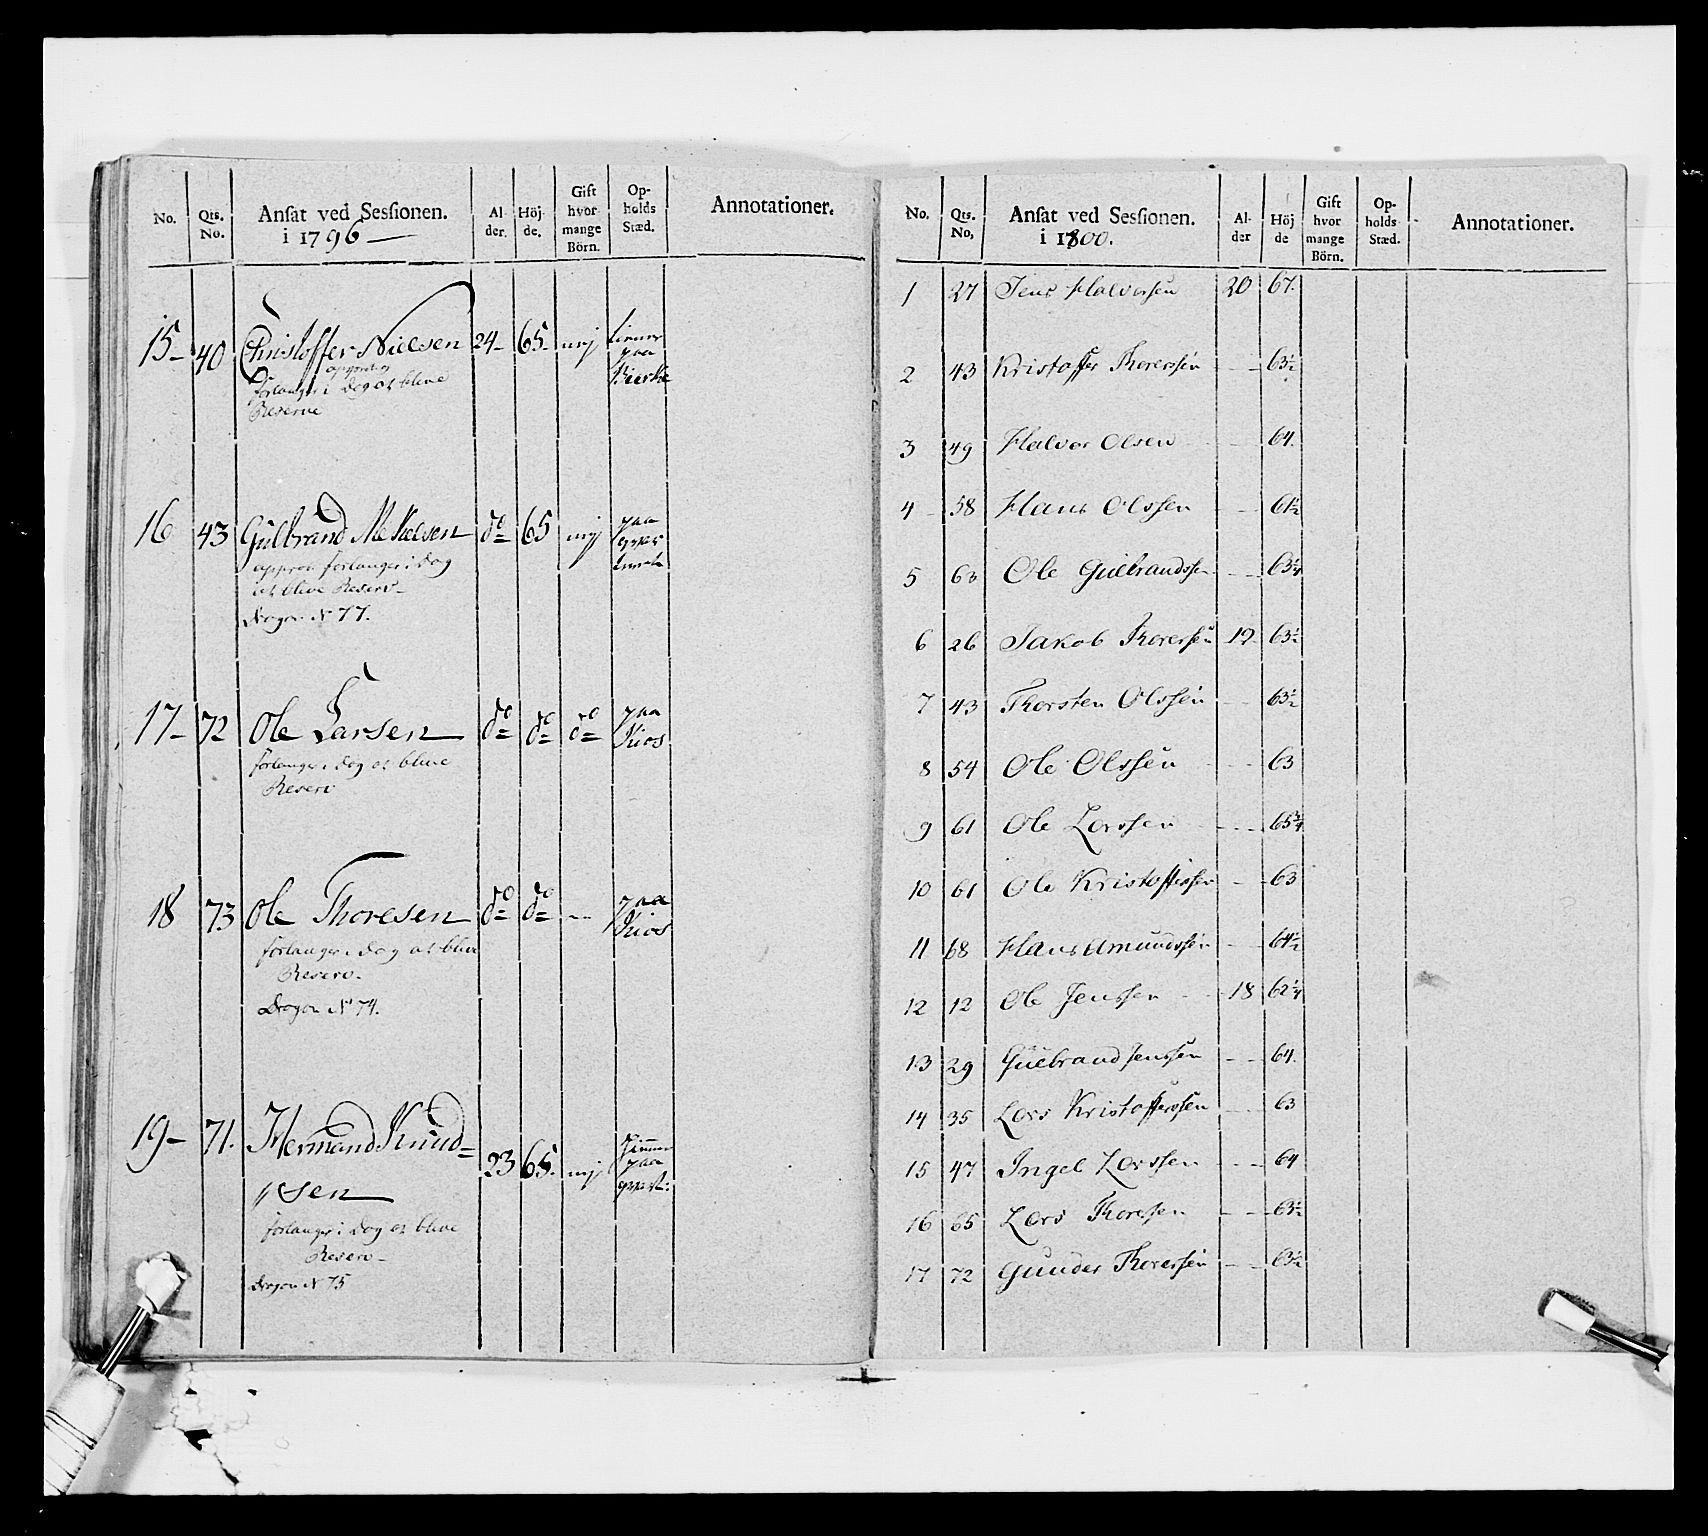 No. Qts. No. Ansat ved Sessionen. i 1796 — Al- der. Höj- de. Gift hvor mange Börn. Op- holds Stæd. Annotationer.
15 – 40 Christoffer Nielsen 24 – 65 – nej paa Bierke
forlanger i Dag at blive
Reserve
16 43 Gulbrand Mekelsen do 65 nej paa
forlanger i Dag
at blive Reserv –
Dragon N 77.
17 – 72 Ole Larsen do do do paa Kios
forlanger i Dag at blive
Reserv
18 73 Ole Thoresen do do — paa Kios
forlanger i Dag at blive
Reserv –
Dragon N 74.
19 – 71. Hermand Knud=
sen 23 65. nej paa
forlanger i Dag at blive
Reserv –
Dragon N 75
No. Qts. No, Ansat ved Sessionen. i 1800. Al- der Höj de Gift hvor mange Börn. Op- holds- Stæd. Annotationer.
1 27 Jens Halvorsen 20 67.
2 43 Kristoffer Thorersen — 63½
3 49 Halvor Olsen — 64.
4 – 58 Hans Olssen — 61½
5 63 Ole Gulbrandssen — 63¼
6 26 Jakob Thorersen 19 63½
7 43 Thorsten Olssen — 63½
8 54 Ole Olssen — 63
9 61 Ole Larssen — 65¾
10 61 Ole Kristoffersen — 63
11 68 Hans Amundssen — 64½
12 12 Ole Jenssen — 18 62¼
13 29 Gulbrand Jenssen — 64.
14 35 Lars Kristofferssen — 63
15 47 Ingel Larssen — 64
16 65 Lars Thoresen — 63½
17 72 Gunder Thorersen — 63½